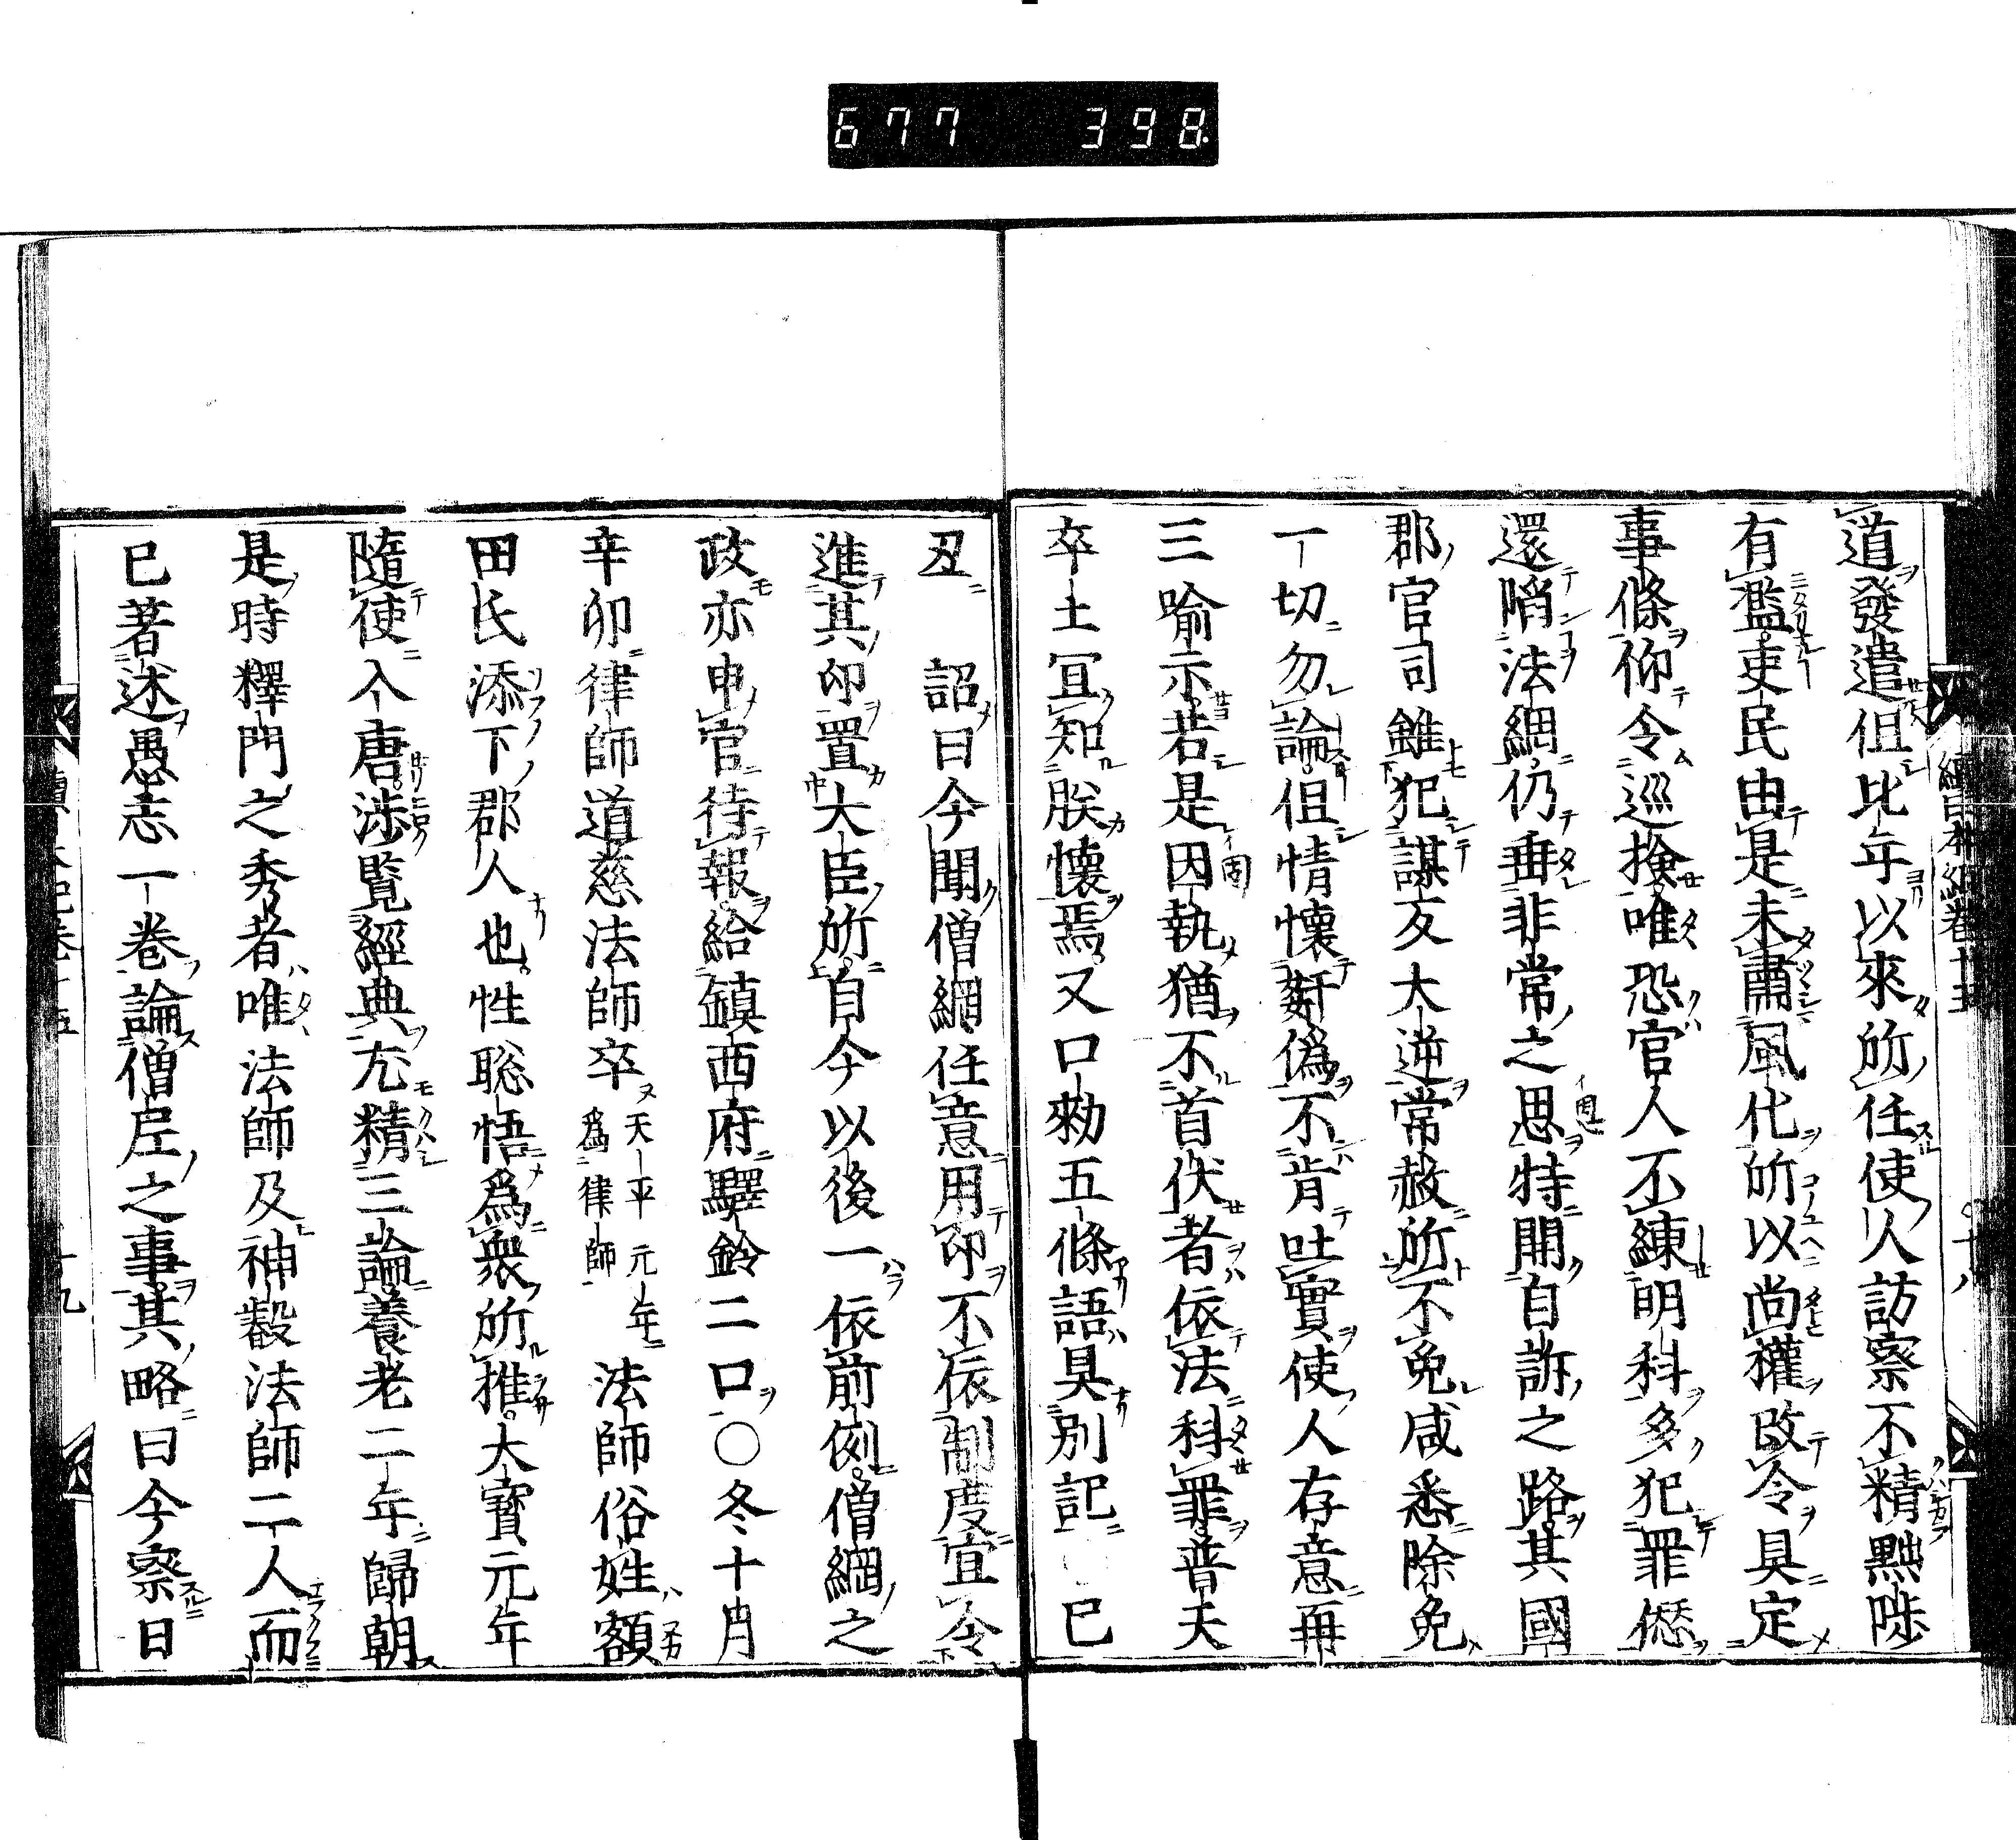 677 398
道發遣但比年以來所任使人訪察不精黜陟
有濫吏民由是未肅風化所以尚權改令具定
事條仰令巡撿唯恐官人不練明科多犯罪愆
還陷法網仍垂非常之思特開自訴之路其國
郡官司雖犯謀反大逆常赦所不免咸悉除免
一切勿論但情懷姧僞不肯吐實使人存意再
三喻示若是因執猶不首伏者依法科罪普天
卒土冝知朕懷焉又口勅五條語具別記 已
丑 詔曰今聞僧綱任意用印不依制度宜令
進其印置大臣所自今以後一依前例僧綱之
政亦申官待報給鎮西府驛鈴二口○冬十月
辛卯律師道慈法師卒天平元年爲律師法師俗姓額
田氏添下郡人也性聡悟爲衆所推大寶元年
隨使入唐渉覧經典尤精三論養老二年歸朝
是時釋門之秀者唯法師及神叡法師二人而
已著述愚志一巻論僧尼之事其略曰今察日